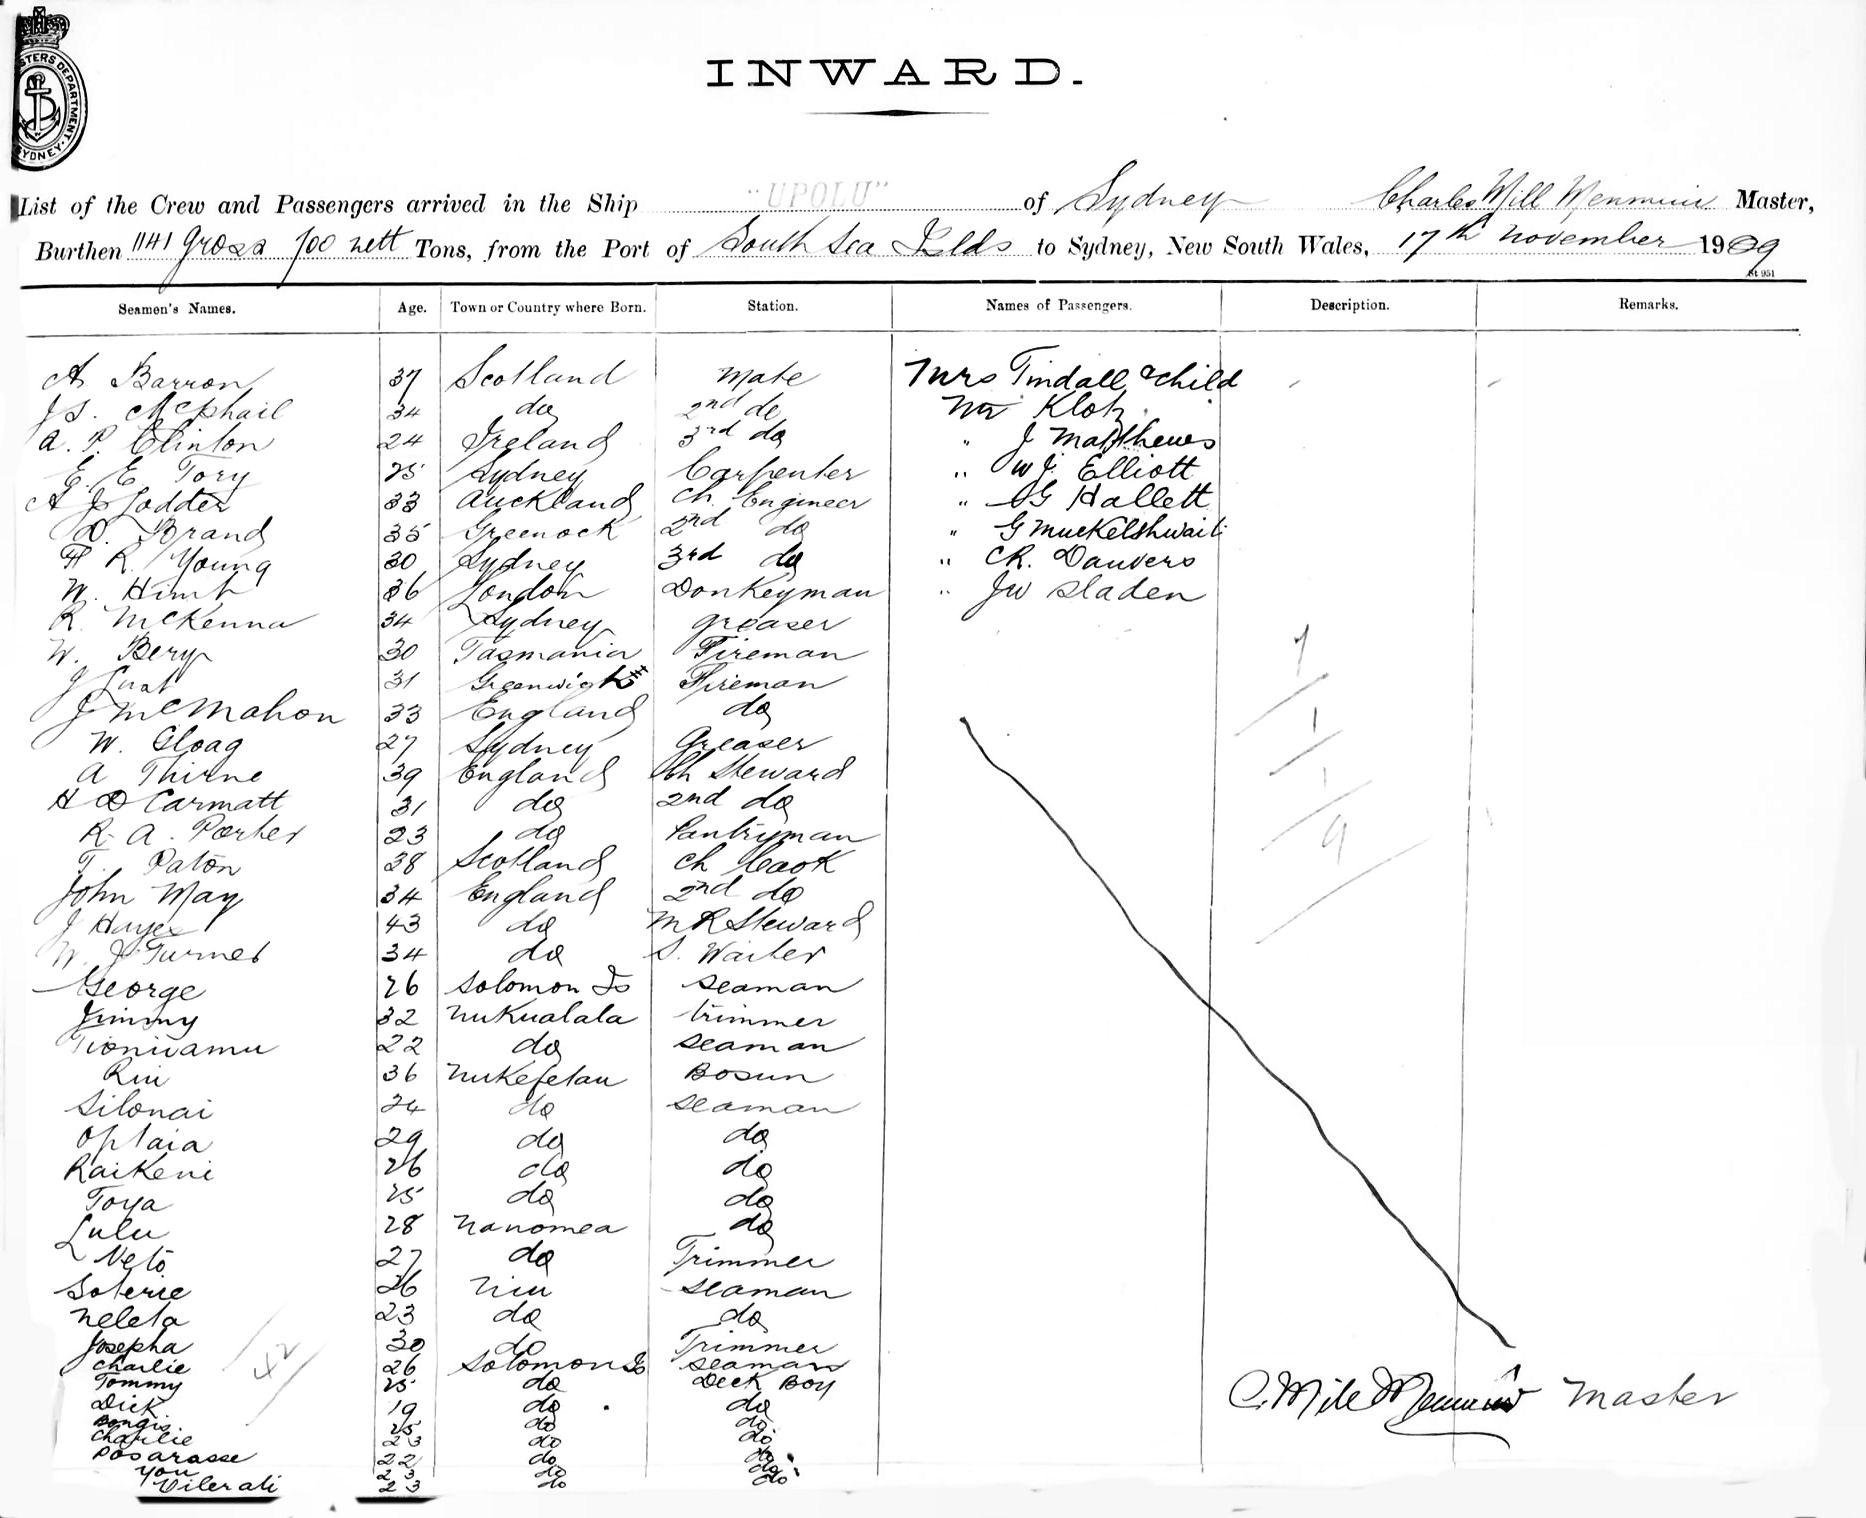 INWARD.
MASTERS DEPARTMENT. SYDNEY.
List of the Crew and Passengers arrived in the Ship "UPOLU" of Sydney Charles Mill Menmuir Master,
Burthen 1141 Gross 700 nett Tons, from the Port of South Sea Islds to Sydney, New South Wales, 17th November 1909
St 951
Seamen's Names. Age. Town or Country where Born. Station. Names of Passengers. Description. Remarks.
A Barron 37 Scotland Mate Mrs Tindall & child
J S. McPhail 34 do 2nd do Mr Klotz
A. P. Clinton 24 Ireland 3rd do " J Matthews
E. E. Tory 25 Sydney Carpenter " W J. Elliott
A J Lodder 33 Auckland Ch. Engineer " S G Hallett
D. Brand 35 Greenock 2nd do " G Muckelshwait
H R. Young 30 Sydney 3rd do " C R. Danvers
W. 36 London Donkeyman " J W Sladen
R. McKenna 34 Sydney greaser
W. Bery 30 Tasmania Fireman
J 31 Greenwich Fireman
J McMahon 33 England do
W. Gloag 27 Sydney Greaser
A Thirne 39 England Ch Steward
H D Carmatt 31 do 2nd do
R. A. Porter 23 do Pantryman
T. Paton 38 Scotland Ch Cook
John May 34 England 2nd do
J Hayes 43 do M R Steward
W. J. Turner 34 do S. Waiter
George 26 Solomon Is Seaman
Jimmy 32 Nukualala trimmer
22 do Seaman
Riu 36 Nukefetau Bosun
Silonai 24 do Seaman
Optaia 29 do do
Raikeni 26 do do
Toya 25 do do
Lulu 28 Nanomea do
Neto 27 do Trimmer
Soterie 26 Niu Seaman
Neleta 23 do do
Josepha 30 do Trimmer
Charlie 26 Solomon Is Seaman
Tommy 25 do Deck Boy
Dick 19 do do
Bongis 25 do do
Charlie 23 do do
Posarasse 22 do do
You 23 do do
Vilerati 23 do do
7
1
1
9
42
C. Mill Menmuir Master